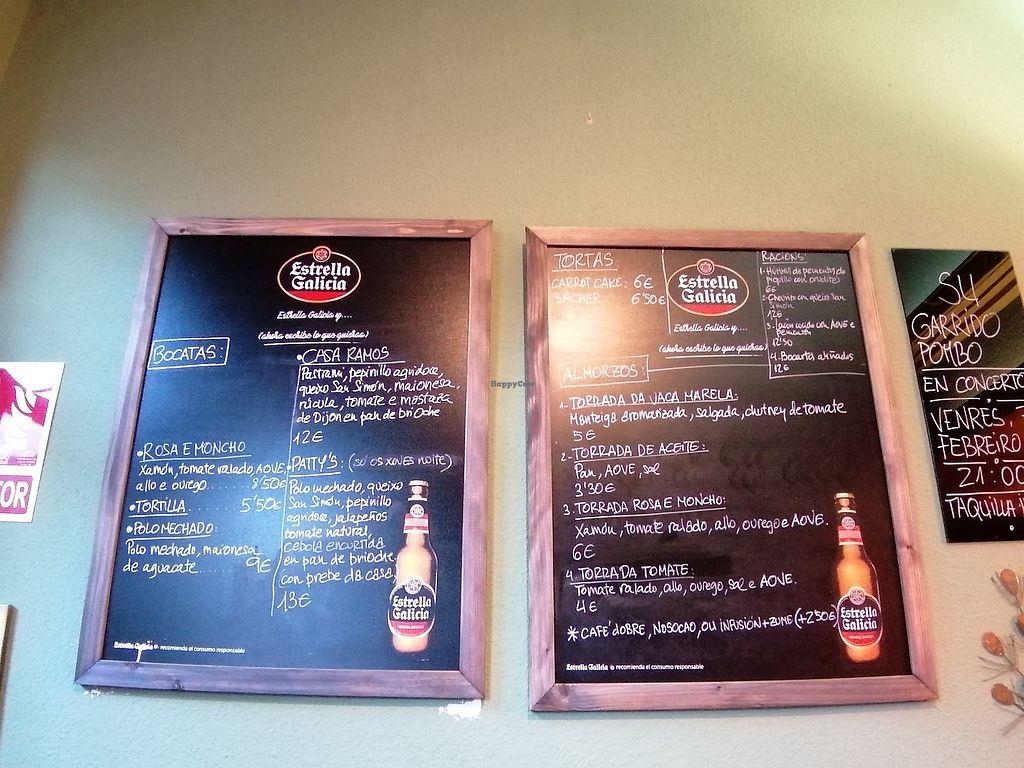 Estrella
Galicia
Estrella Galicia y....
(ahora escribe lo que quieras)
BOCATAS:
• ROSA E MONCHO
Xamón, tomate ralado, AOVE,
allo e ourego........8'50€
• TORTILLA........5'50€
• POLO MECHADO:
Polo mechado, maionesa
de aguacate...... 9€
• CASA RAMOS
Pastrami, pepinillo agridoce,
queixo San Simón, maionesa,
rúcula, tomate e mostaza
de Dijon en pan de brioche
12€
• PATTY'S: (só os xoves noite)
Polo mechado, queixo
San Simón, pepinillo
agridoce, jalapeños
tomate natural,
cebola encurtida
en pan de brioche
(con prebe da casa)
13€
Estrella
Galicia
Estrella Galicia recomienda el consumo responsable
TORTAS:
CARROT CAKE: 6€
SACHER 6'50€
Estrella
Galicia
Estrella Galicia y....
(ahora escribe lo que quieras)
RACIONS:
6€
2.
con queixo San
Simón
12€
3. cocido con AOVE e
pementón
12'50
4. Bocartes aliñados
12€
ALMORZOS:
1- TORRADA DA VACA MARELA:
Manteiga aromatizada, salgada, chutney de tomate
5€
2- TORRADA DE ACEITE:
Pan, AOVE, sal
3'30€
3. TORRADA ROSA E MONCHO:
Xamón, tomate ralado, allo, ourego e AOVE.
6€
4. TORRADA TOMATE:
Tomate ralado, allo, ourego, sal e AOVE.
4€
* CAFÉ DOBRE, NOSOCAO, OU INFUSIÓN + ZUME (+2'50€)
Estrella
Galicia
Estrella Galicia recomienda el consumo responsable
SU
GARRIDO
POMBO
EN CONCERTO
VENRES,
FEBREIRO
21:00
TAQUILLA
TOR
HappyCow